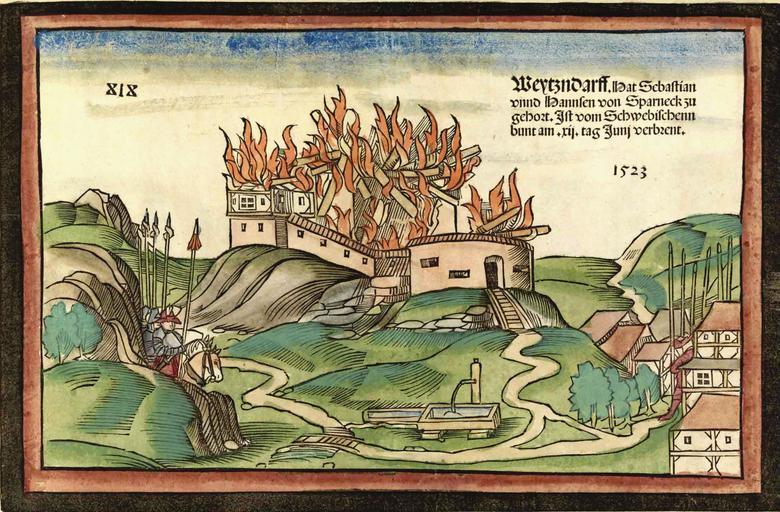 XIX
Weytzndarff. Hat Sebastian
vnnd Hannsen von Sparneck zu
gehort. Ist vom Schwebischenn
bunt am .xij. tag Junj verbrent.
1523